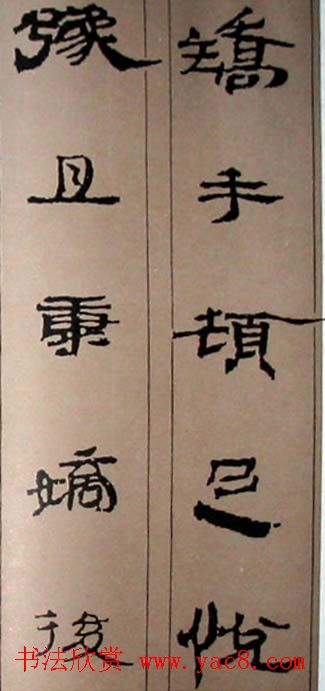 矯手頓足悅
豫且康嫡後
书法欣赏 www.yac8.com